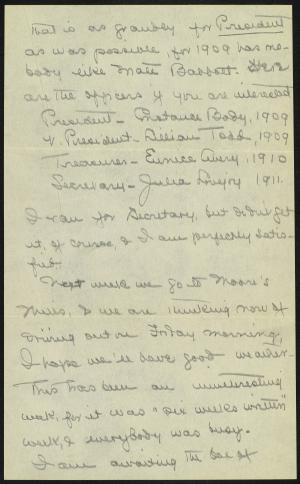 that is as grandly for President
as was possible, for 1909 has no-
body like Mate Babbott. Here
are the officers if you are interested
President - Constance Body, 1909
V. President - Lillian Todd, 1909
Treasurer - Eunice Avery, 1910
Secretary - Julia Lovejoy 1911.
I ran for Secretary, but didn't get
it, of course, & I am perfectly satis-
fied.
Next week we go to Moore's
Mills, & we are thinking now of
driving out on Friday morning,
I hope we'll have good weather.
This has been an uninteresting
week, for it was "six weeks written"
week, & everybody was busy.
I am awaiting the box of